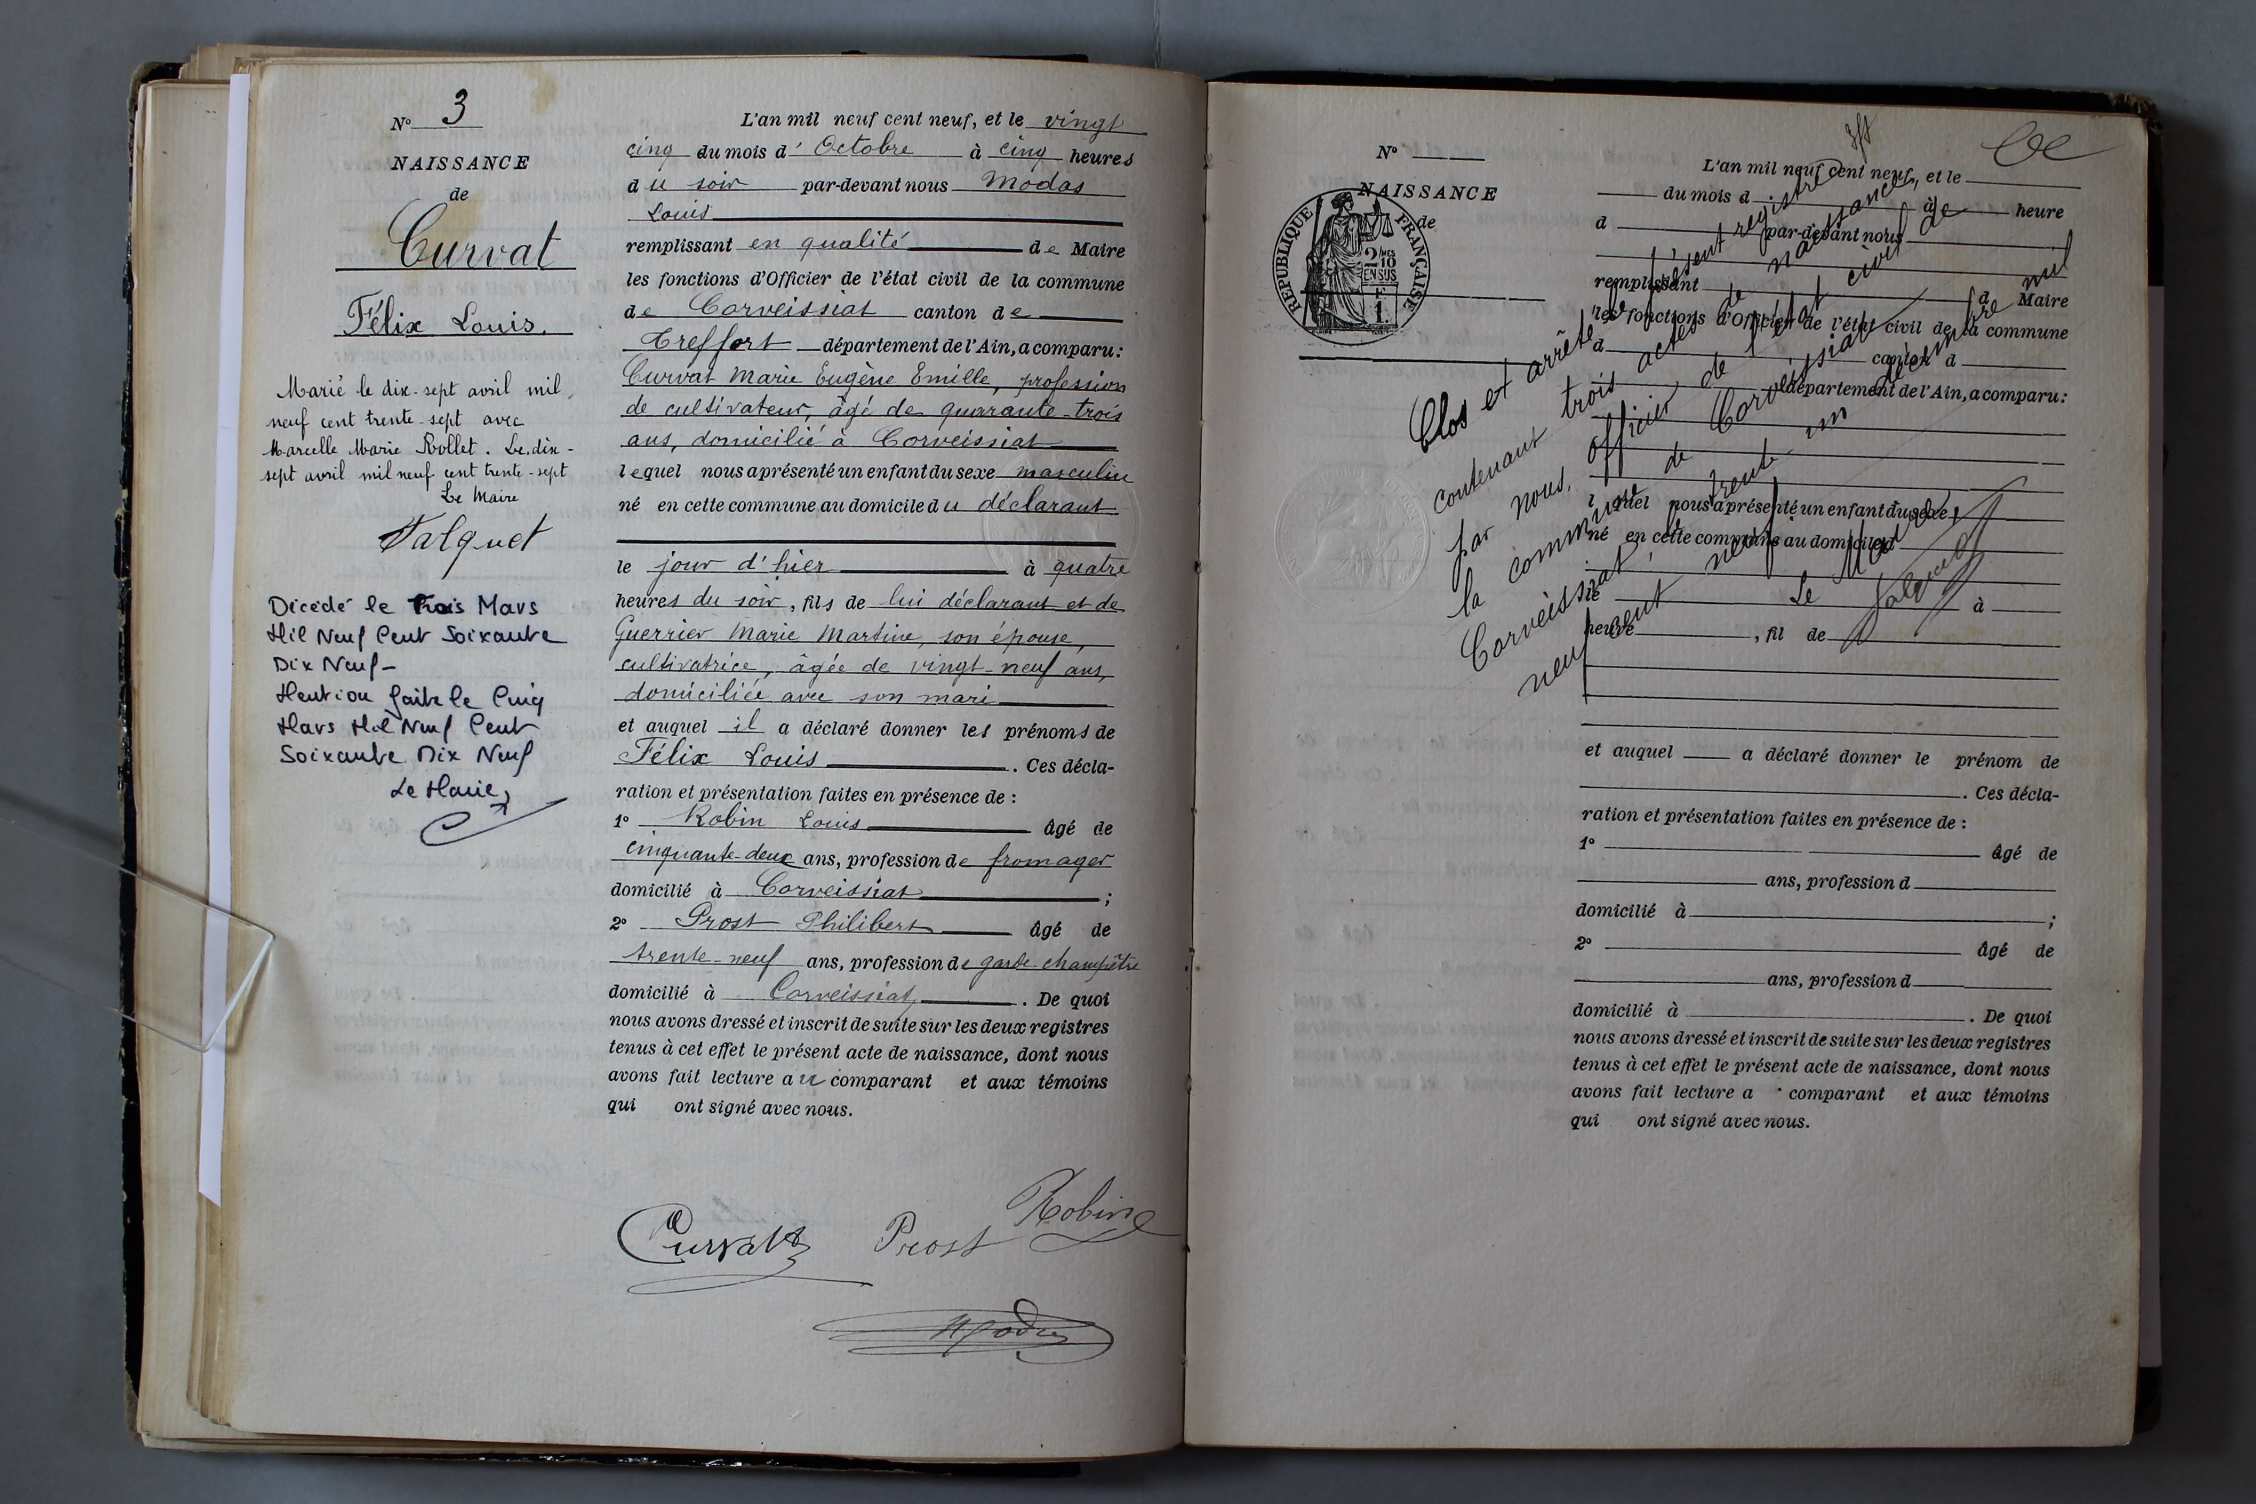 N° 3
NAISSANCE
de
Curvat
Félix Louis.
Marié le dix-sept avril mil
neuf cent trente-sept avec
Marcelle Marie Rollet. Le dix-
sept avril mil neuf cent trente-sept
Le Maire
Jalquet
Décédé le Trois Mars
Mil Neuf Cent Soixante
Dix Neuf-
Mention faite le Cinq
Mars Mil Neuf Cent
Soixante Dix Neuf
Le Maire,
L'an mil neuf cent neuf, et le vingt
cinq du mois d'Octobre à cinq heures
du soir par-devant nous Modas
Louis
remplissant en qualité de Maire
les fonctions d'Officier de l'état civil de la commune
de Corveissiat canton de
Treffort département de l'Ain, a comparu:
Curvat Marie Eugène Emille, profession
de cultivateur, âgé de quarante-trois
ans, domicilié à Corveissiat
lequel nous a présenté un enfant du sexe masculin
né en cette commune au domicile du déclarant
le jour d'hier à quatre
heures du soir, fils de lui déclarant et de
Guerrier Marie Martine, son épouse,
cultivatrice, âgée de vingt-neuf ans,
domiciliée avec son mari
et auquel il a déclaré donner les prénoms de
Félix Louis. Ces décla-
ration et présentation faites en présence de :
1° Robin Louis âgé de
cinquante-deux ans, profession de fromager
domicilié à Corveissiat ;
2° Prost Philibert âgé de
trente-neuf ans, profession de garde-champêtre
domicilié à Corveissiat. De quoi
nous avons dressé et inscrit de suite sur les deux registres
tenus à cet effet le présent acte de naissance, dont nous
avons fait lecture au comparant et aux témoins
qui ont signé avec nous.
Robin
Curvat Prost
N°
NAISSANCE
de
RÉPUBLIQUE FRANÇAISE
2/10
EN SUS
1F
L'an mil neuf cent neuf, et le
du mois d à heure
d par-devant nous
remplissant d Maire
les fonctions d'Officier de l'état civil de la commune
d canton d
département de l'Ain, a comparu:
l quel nous a présenté un enfant du sexe
né en cette commune au domicile d
le à
heure , fil de
et auquel a déclaré donner le prénom de
. Ces décla-
ration et présentation faites en présence de :
1° âgé de
ans, profession d
domicilié à ;
2° âgé de
ans, profession d
domicilié à . De quoi
nous avons dressé et inscrit de suite sur les deux registres
tenus à cet effet le présent acte de naissance, dont nous
avons fait lecture a comparant et aux témoins
qui ont signé avec nous.
Clos et arrêté le présent registre
contenant trois actes de naissances
par nous, officier de l'état civil de
la commune de Corveissiat
Corveissiat, le trente un décembre mil
neuf cent neuf
Le Maire
Jalquet